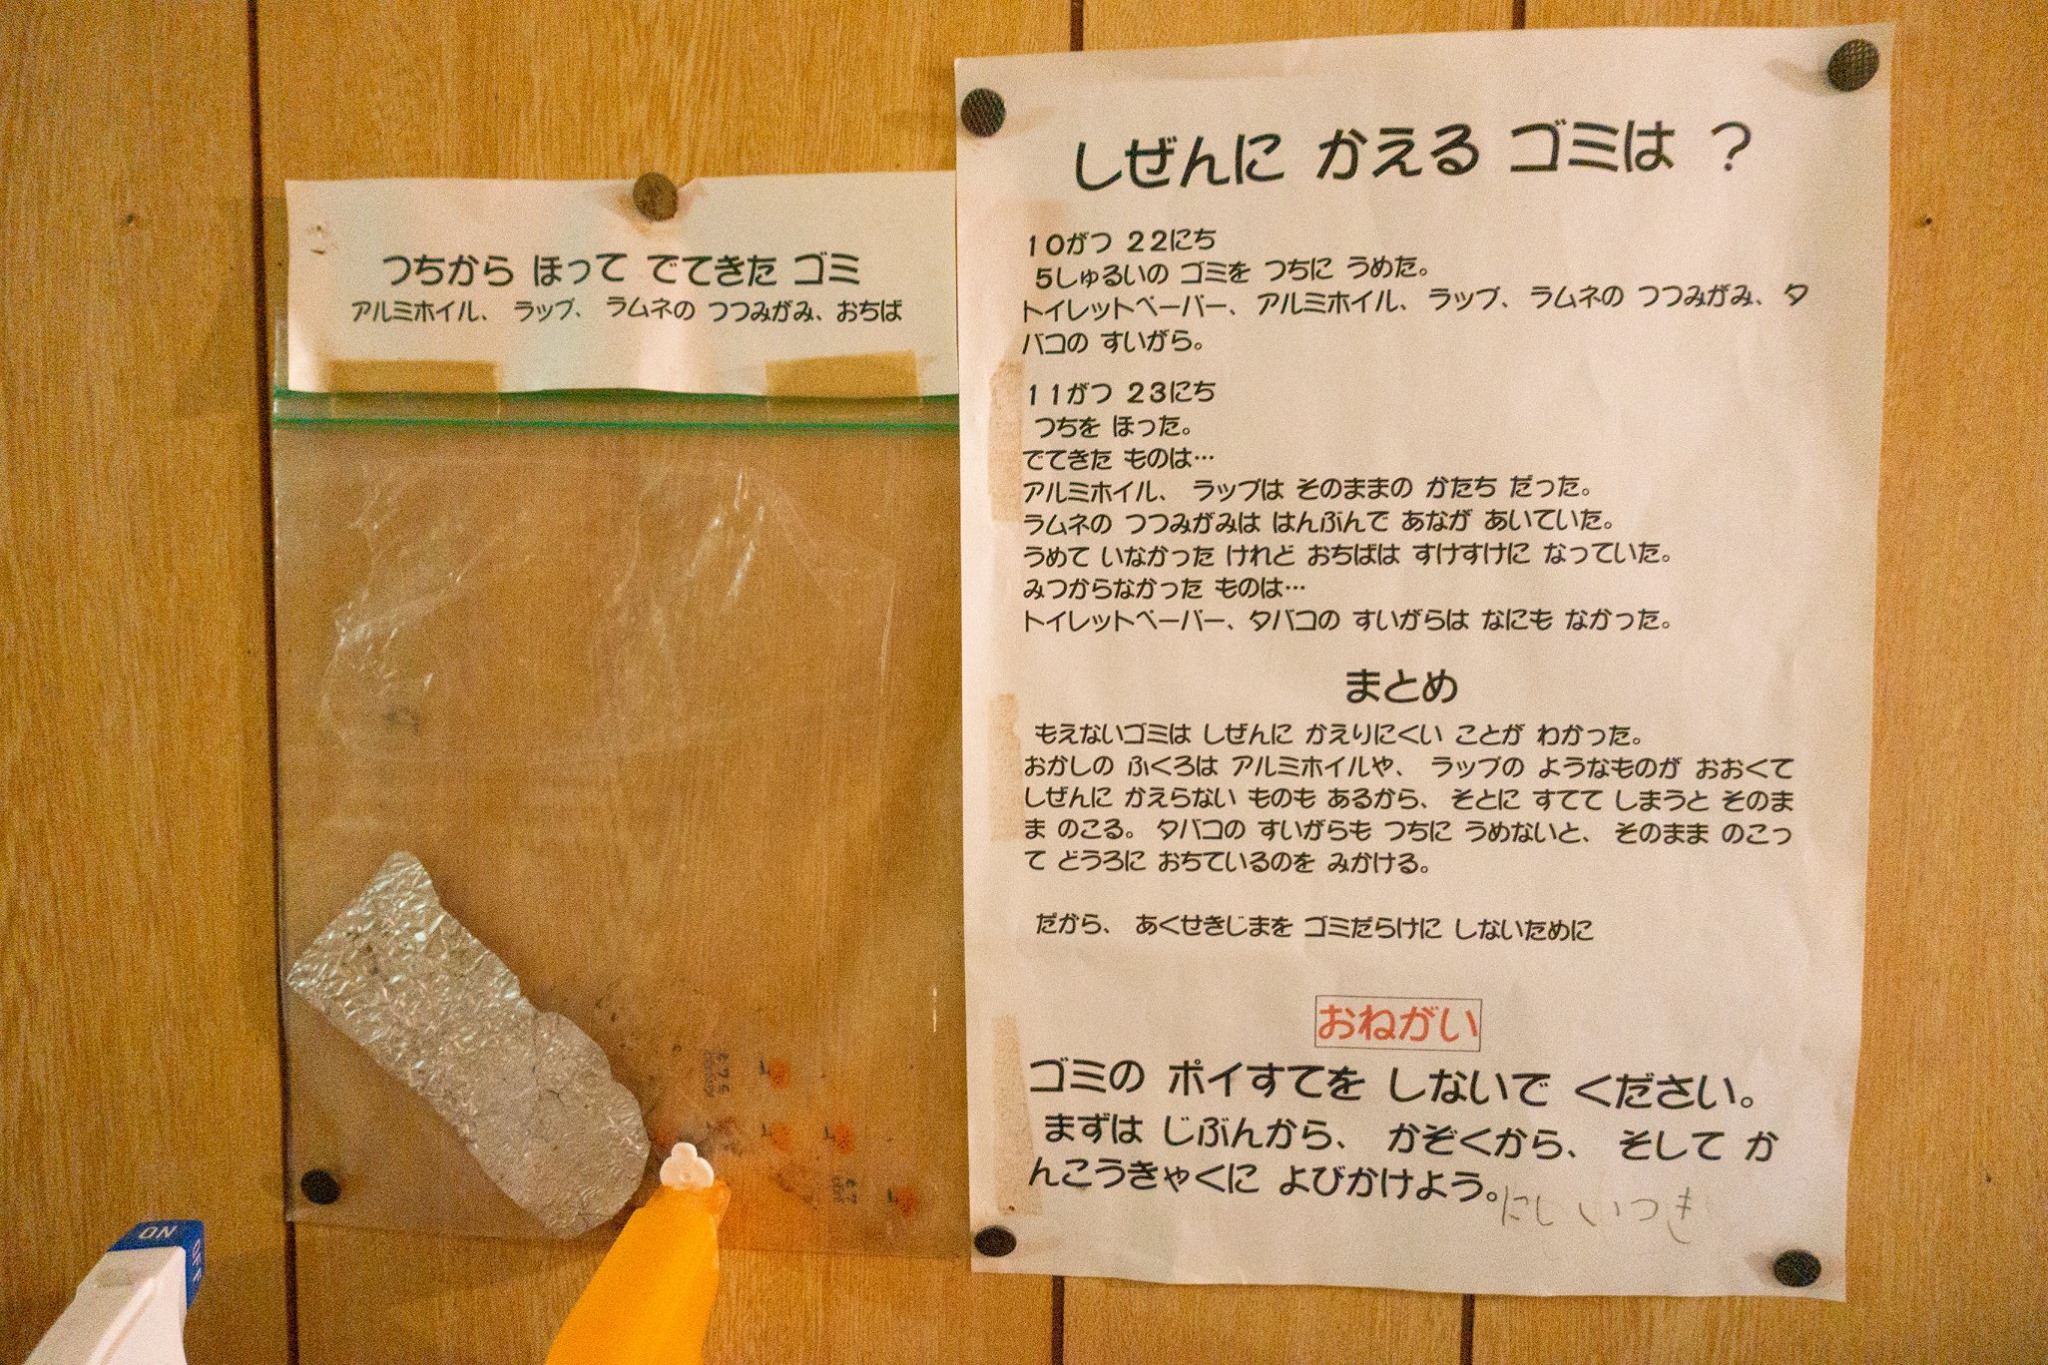 つちから ほって でてきた ゴミ
アルミホイル、 ラップ、 ラムネの つつみがみ、おちば
しぜんに かえる ゴミは ?
10がつ 22にち
5しゅるいの ゴミを つちに うめた。
トイレットペーパー、アルミホイル、ラップ、ラムネの つつみがみ、タ
バコの すいがら。
11がつ 23にち
つちを ほった。
でてきた ものは…
アルミホイル、 ラップは そのままの かたち だった。
ラムネの つつみがみは はんぶんで あなが あいていた。
うめて いなかった けれど おちばは すけすけに なっていた。
みつからなかった ものは…
トイレットペーパー、タバコの すいがらは なにも なかった。
まとめ
もえないゴミは しぜんに かえりにくい ことが わかった。
おかしの ふくろは アルミホイルや、 ラップの ようなものが おおくて
しぜんに かえらない ものも あるから、 そとに すてて しまうと そのま
ま のこる。 タバコの すいがらも つちに うめないと、 そのまま のこっ
て どうろに おちているのを みかける。
だから、 あくせきじまを ゴミだらけに しないために
おねがい
ゴミの ポイすてを しないで ください。
まずは じぶんから、 かぞくから、 そして か
んこうきゃくに よびかけよう。
にし いつき
ON
OFF